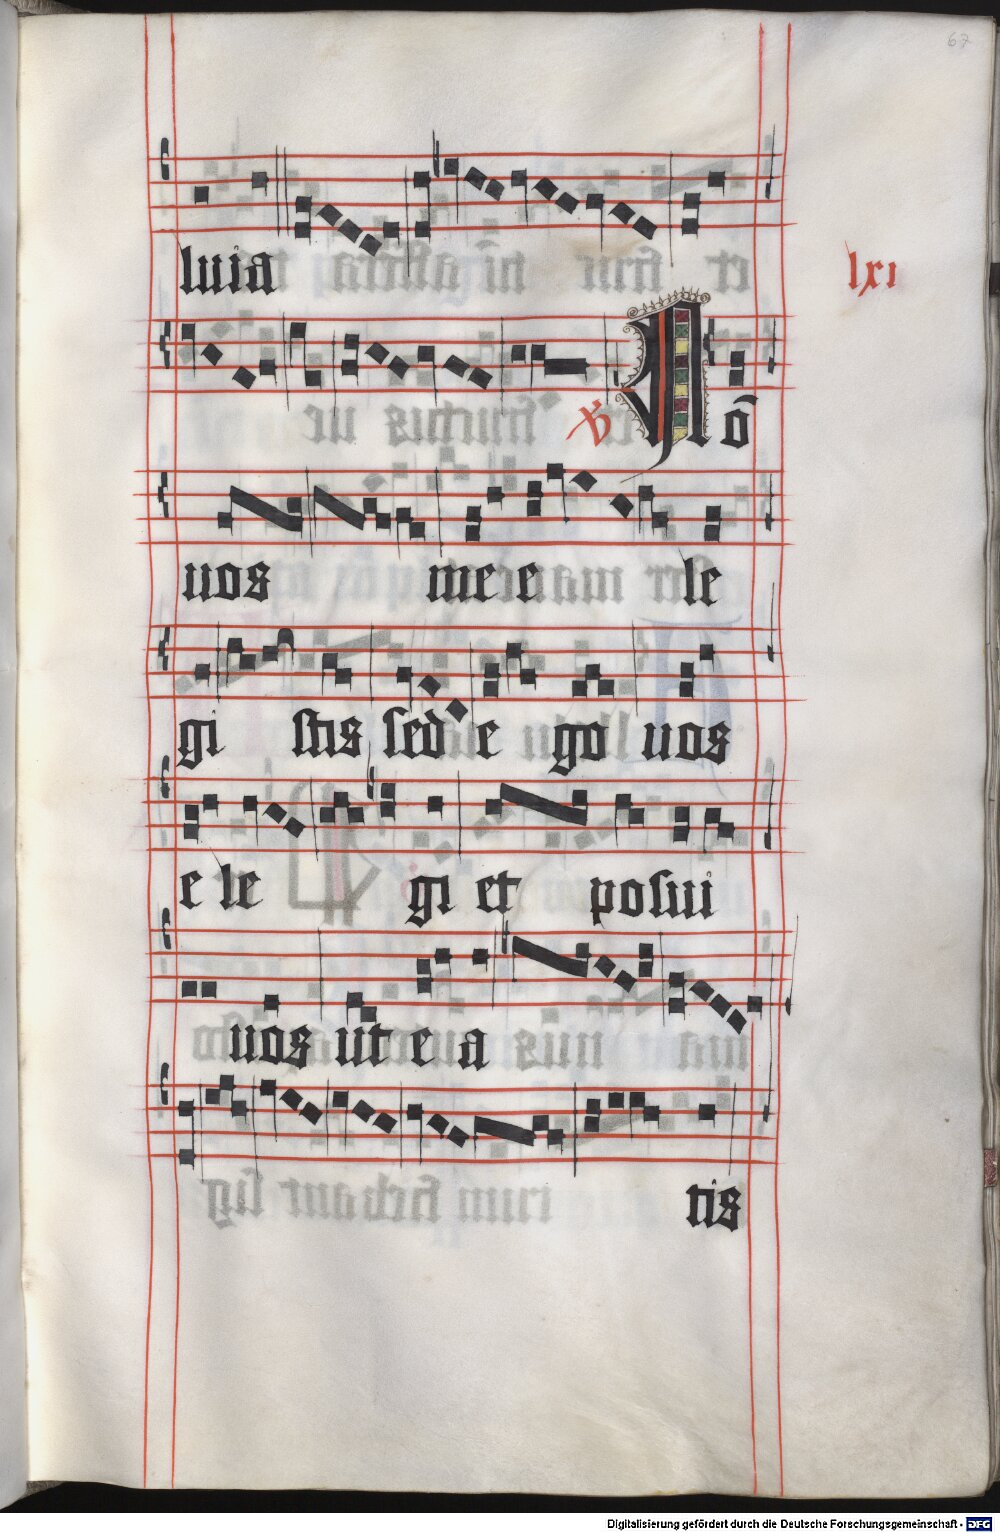 67
luia
lxi
℣ Nō
uos me e le
gi stis sed e go uos
e le gi et posui
uos ut e a
tis
Digitalisierung gefördert durch die Deutsche Forschungsgemeinschaft - DFG